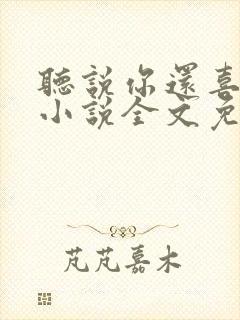 聽說你還喜
小說全文免
芃芃嘉木